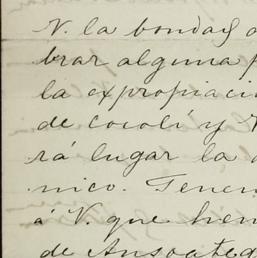 V. la bondad d
brar alguna p
la expropiaci
de cocoli y
rá lugar la
nico. Tenem
á V. que hem
de Ansoateg